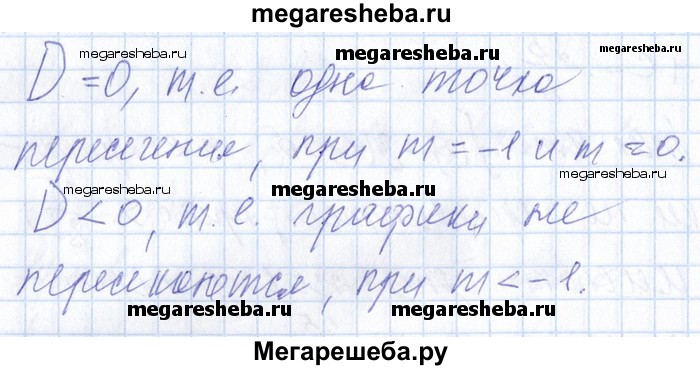 megaresheba.ru
megaresheba.ru megaresheba.ru
D = 0, т.е. одна точка
megaresheba.ru megaresheba.ru
пересечения, при m = -1 и m = 0.
megaresheba.ru megaresheba.ru
D < 0, т.е. графики не
megaresheba.ru
пересекаются, при m < -1.
megaresheba.ru megaresheba.ru
Мегарешеба.ру